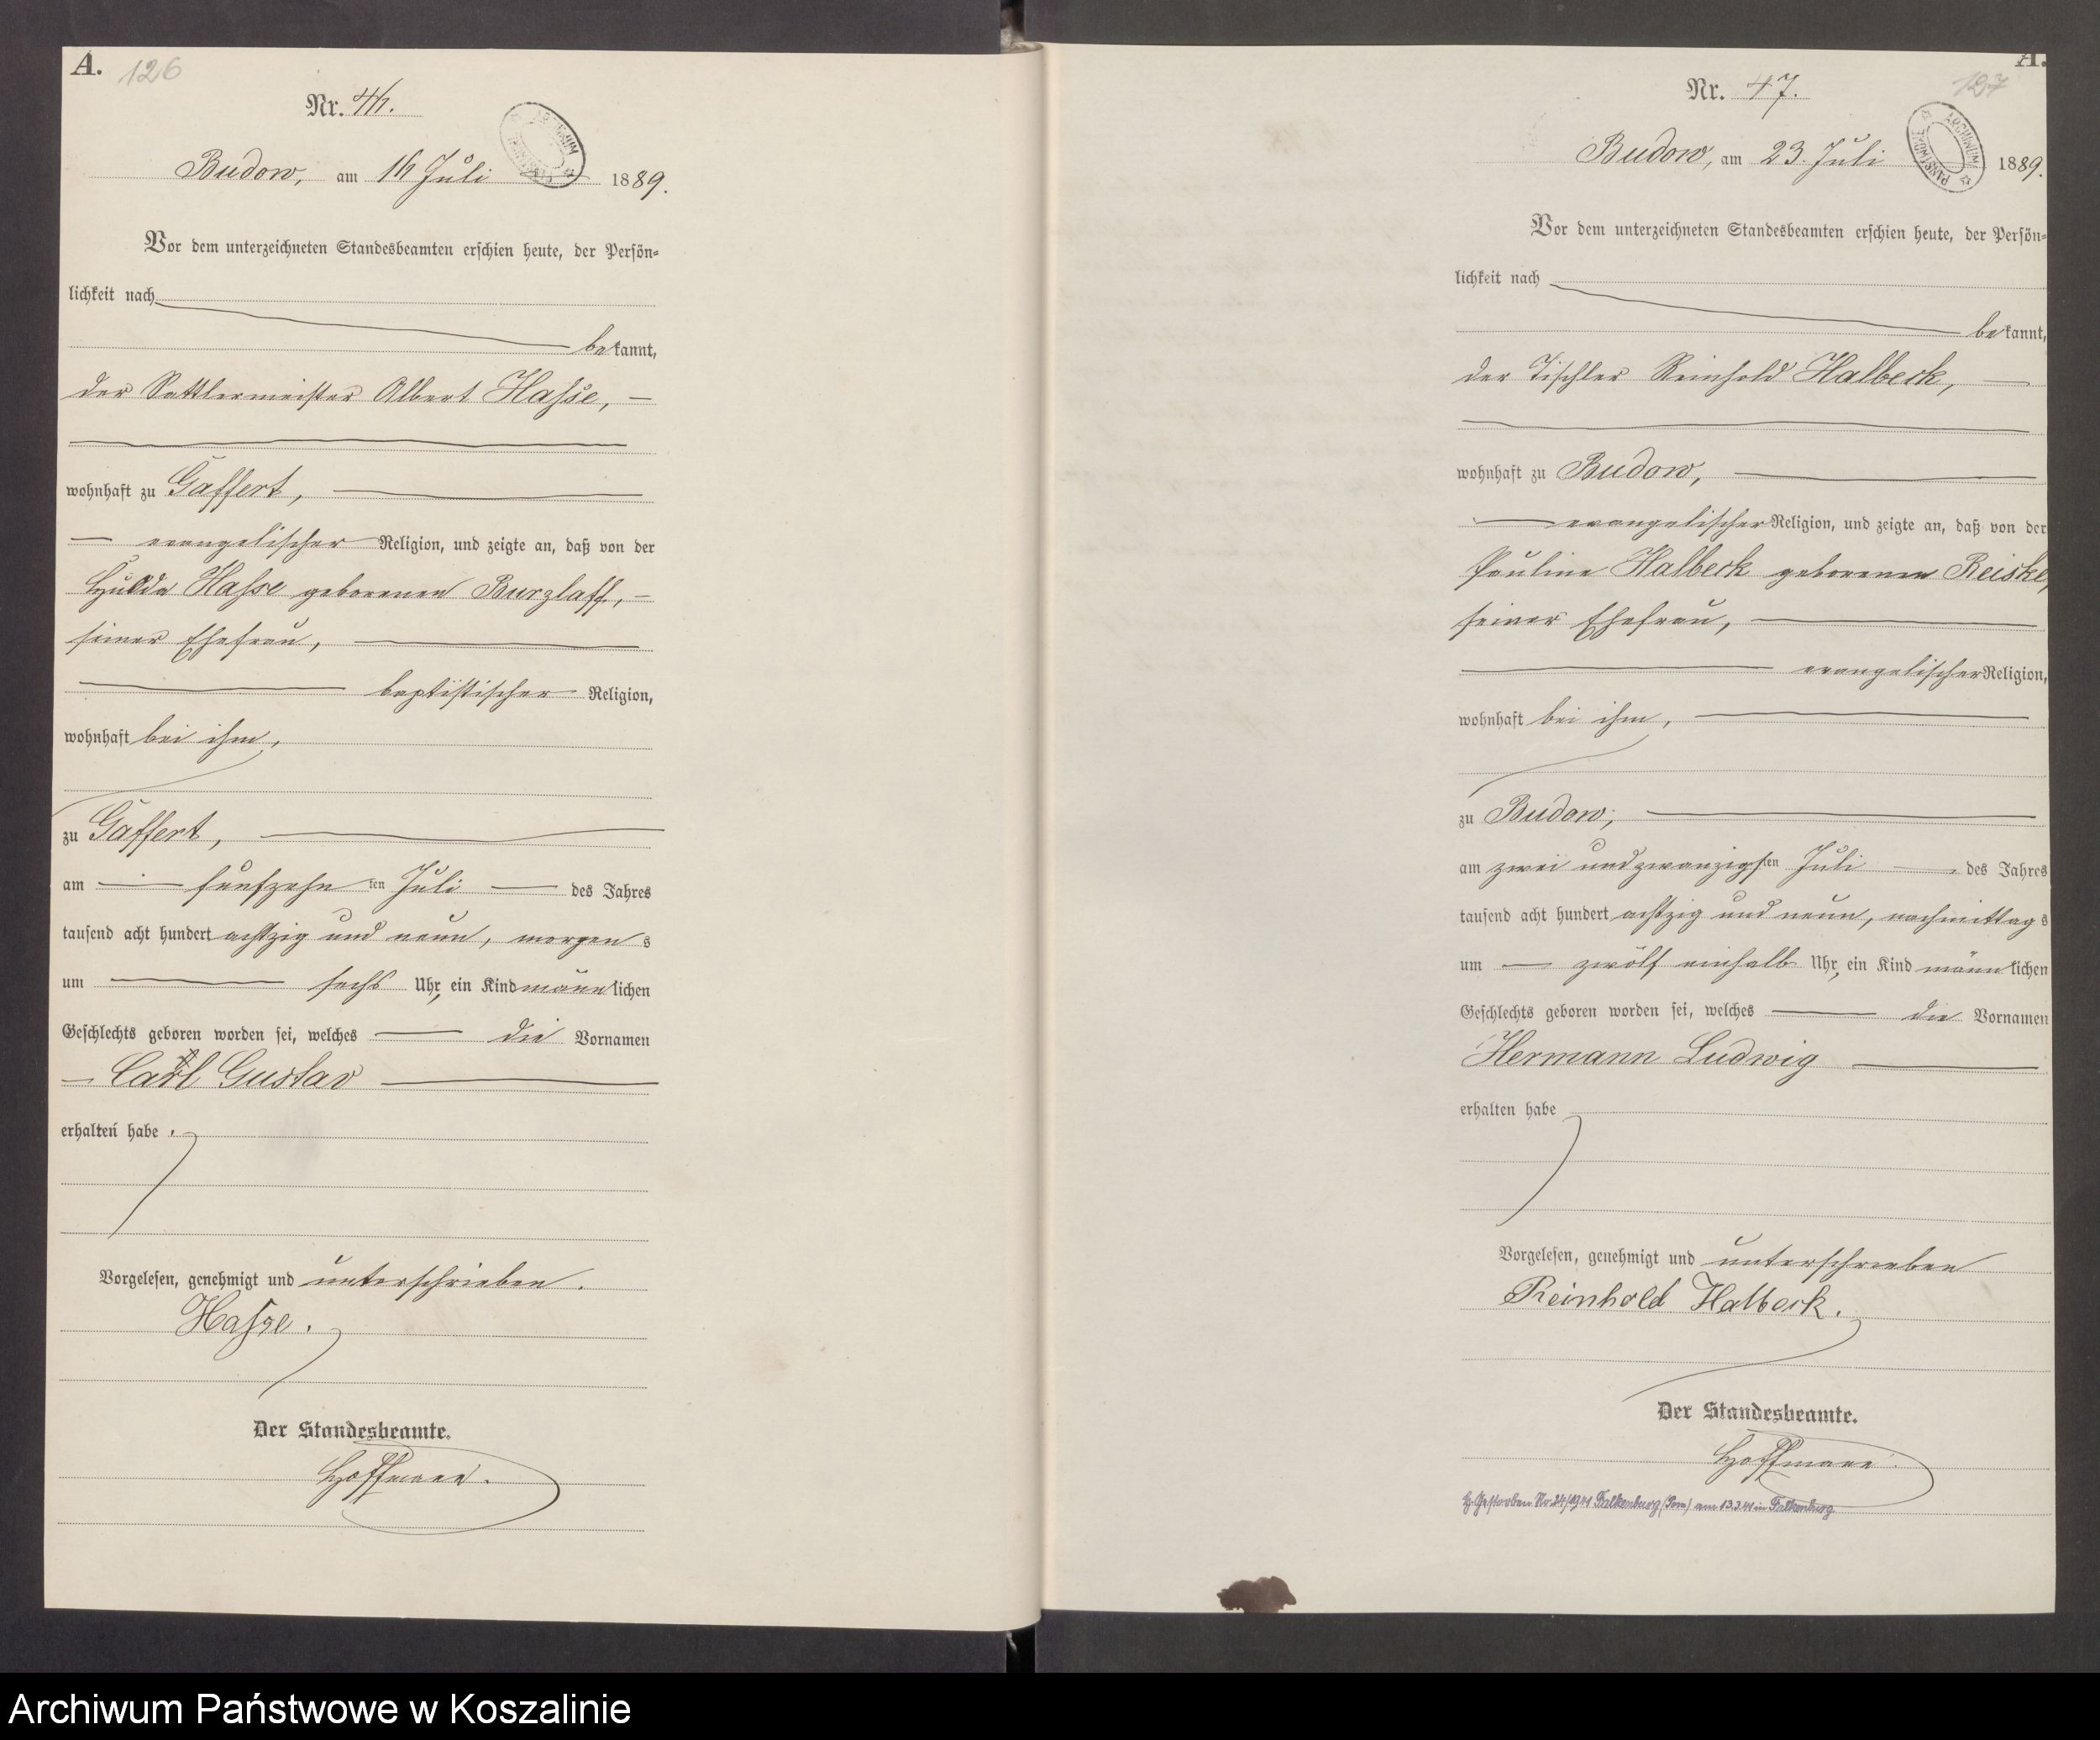 A. 126
Nr. 46.
ARCHIWUM PAŃSTWOWE
Budow, am 16 Juli 1889.
Vor dem unterzeichneten Standesbeamten erschien heute, der Persön-
lichkeit nach
bekannt,
der Sattlermeister Albert Hasse,
wohnhaft zu Gaffert,
evangelischer Religion, und zeigte an, daß von der
Hulda Hasse geborenen Burzlaff,
seiner Ehefrau,
baptistischer Religion,
wohnhaft bei ihm,
zu Gaffert,
am fünfzehnten Juli des Jahres
tausend acht hundert achtzig und neun, morgens
um sechs Uhr, ein Kind männlichen
Geschlechts geboren worden sei, welches die Vornamen
Carl Gustav
erhalten habe.
Vorgelesen, genehmigt und unterschrieben.
Hasse.
Der Standesbeamte.
Hoffmann.
A.
127
Nr. 47.
ARCHIWUM PAŃSTWOWE
Budow, am 23. Juli 1889.
Vor dem unterzeichneten Standesbeamten erschien heute, der Persön-
lichkeit nach
bekannt,
der Tischler Reinhold Halbeck,
wohnhaft zu Budow,
evangelischer Religion, und zeigte an, daß von der
Pauline Halbeck geborenen Reiske,
seiner Ehefrau,
evangelischer Religion,
wohnhaft bei ihm,
zu Budow,
am zwei und zwanzigsten Juli des Jahres
tausend acht hundert achtzig und neun, nachmittags
um zwölf einhalb Uhr, ein Kind männlichen
Geschlechts geboren worden sei, welches die Vornamen
Hermann Ludwig
erhalten habe
Vorgelesen, genehmigt und unterschrieben
Reinhold Halbeck.
Der Standesbeamte.
Hoffmann.
Gestorben Nr. 24/1941 Falkenburg (Pom) am 13.3.41 in Falkenburg.
Archiwum Państwowe w Koszalinie